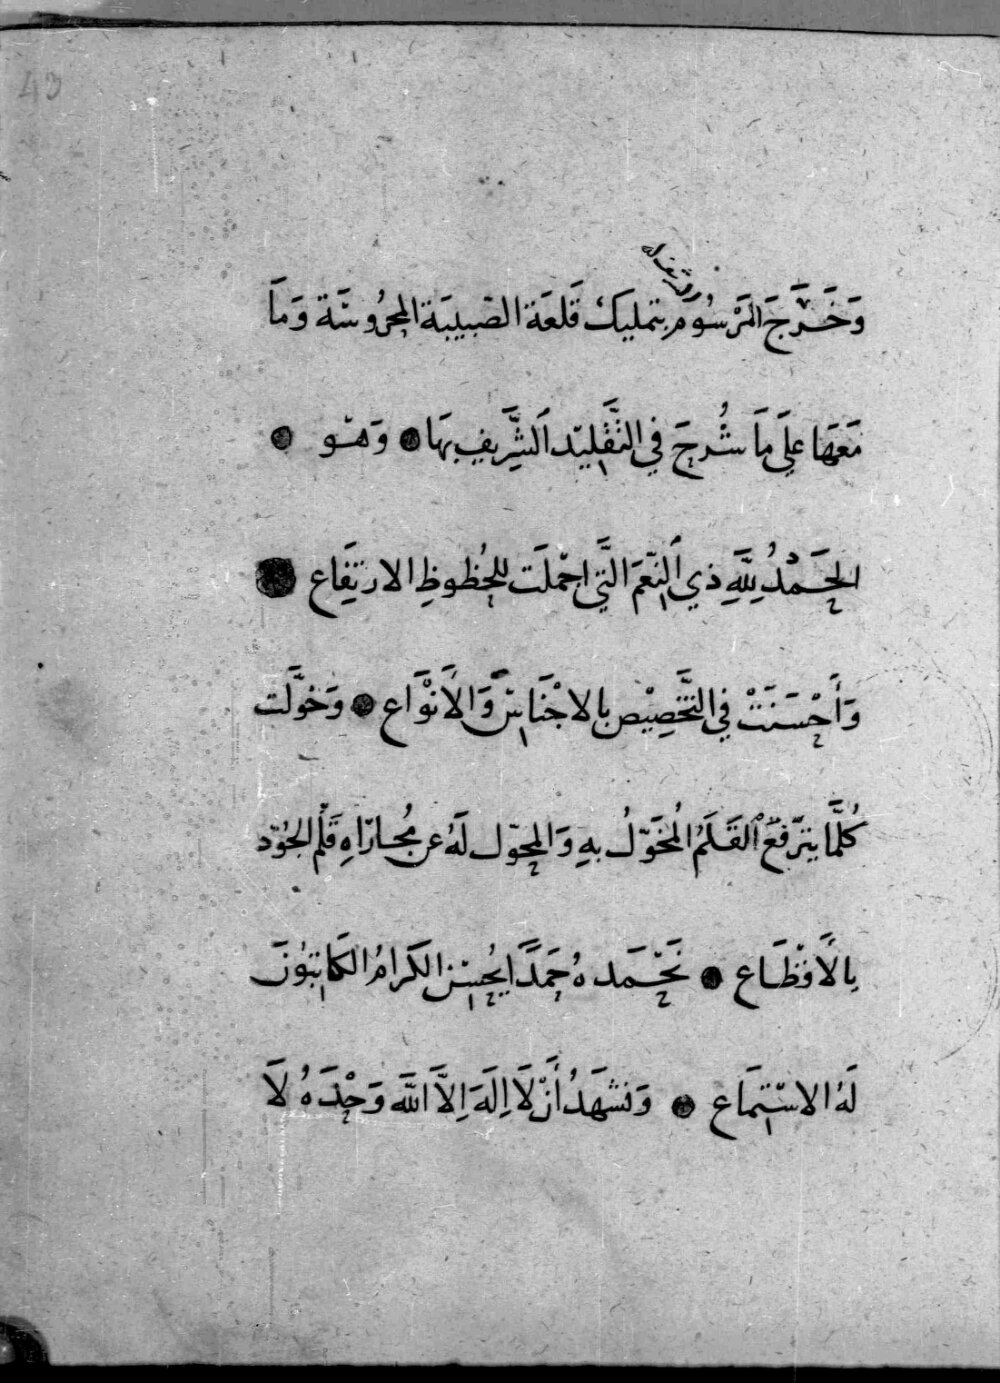 43
وَخَرَجَ المَرْسُوم بتمليك قَلعَة الصّبيبَة المحرُوسَة وَمَا
مَعَهَا عَلَى مَا شُرِحَ فِي التَّقْلِيد الشَّرِيفِ بِهَا ● وَهُو ●
الحَمْدُ لِلَّهِ ذِي النِّعَمِ الَّتِي اجْملَت للحُظوظِ الارتِفَاع ●
وَأَحْسَنَتْ فِي التَّخْصِيْصِ بالاجْنَاسِ وَالأَنْوَاع ● وَخوَّلَت
كُلَّمَا يترَفعُ القَلَمُ المُخَوّلُ بهِ وَالمحوّل لَهُ عن مُجاراهِ قَلم الجُوْد
بِالأَقْطَاع ● نَحْمَدهُ حَمْدًا يُحسِن الكرَامُ الكَاتِبُونَ
لَهُ الاسْتِمَاع ● وَنَشهَدُ أَنْ لَا اِلَهَ اِلَّا اللَّه وَحْدَهُ لَا